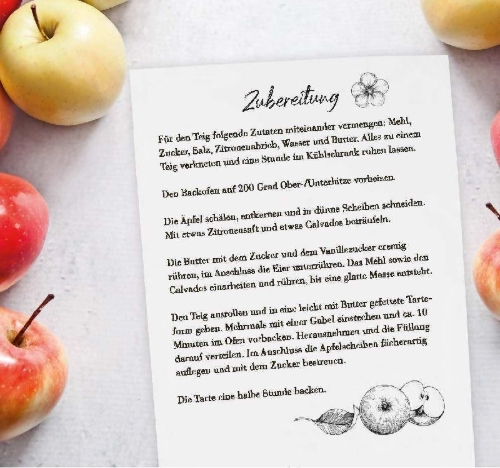 Zubereitung
Für den Teig folgende Zutaten miteinander vermengen: Mehl,
Zucker, Salz, Zitronenabrieb, Wasser und Butter. Alles zu einem
Teig verkneten und eine Stunde im Kühlschrank ruhen lassen.
Den Backofen auf 200 Grad Ober-/Unterhitze vorheizen.
Die Äpfel schälen, entkernen und in dünne Scheiben schneiden.
Mit etwas Zitronensaft und etwas Calvados beträufeln.
Die Butter mit dem Zucker und dem Vanillezucker cremig
rühren, im Anschluss die Eier unterrühren. Das Mehl sowie den
Calvados einarbeiten und rühren, bis eine glatte Masse entsteht.
Den Teig ausrollen und in eine leicht mit Butter gefettete Tarte-
form geben. Mehrmals mit einer Gabel einstechen und ca. 10
Minuten im Ofen vorbacken. Herausnehmen und die Füllung
darauf verteilen. Im Anschluss die Apfelscheiben fächerartig
auflegen und mit dem Zucker bestreuen.
Die Tarte eine halbe Stunde backen.